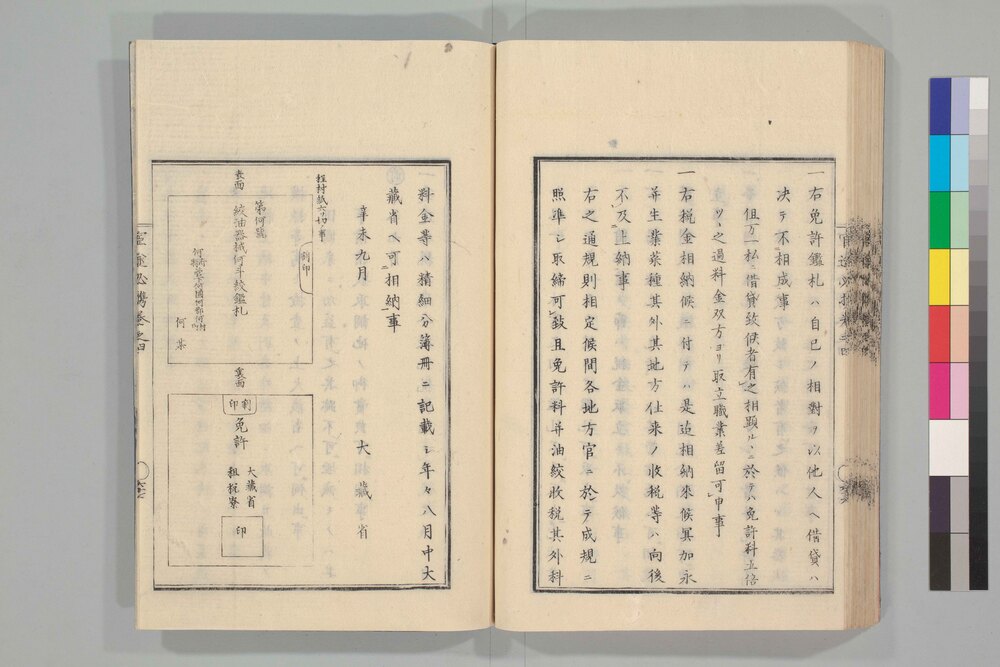 一右免許鑑札ハ自己ノ相對ヲ以他人ヘ借貸ハ
決テ不相成事
但万一私ニ借貸致候者有之相顕ルヽニ於テハ免許料五倍
ツヽ之過料金双方ヨリ取立職業差留可申事
一右税金相納候ニ付テハ是迄相納来候冥加永
并生業菜種其外其地方仕来ノ收税等ハ向後
不及上納事
右之通規則相定候間各地方官ニ於テ成規ニ
照準シ取締可致且免許料并油絞收税其外科
料金等ハ精細分簿冊ニ記載シ年々八月中大
藏省ヘ可相納事
辛未九月
大藏省
程村紙六ツ切事
割印
表面
第何號
絞油器械何斗絞鑑札
何府縣管下何國何郡何村
何某
裏面
割印
免許
大藏省
租税寮
印